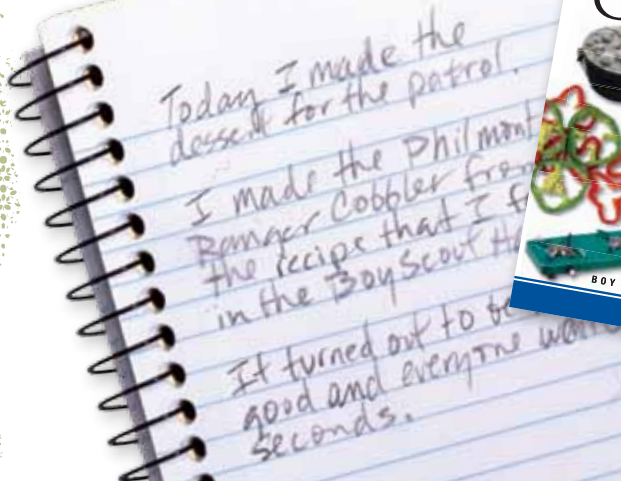 Today I made the
dessert for the patrol.
I made the Philmont
Ranger Cobbler from
the recipe that I
in the Boy Scout
It turned out to be
good and everyone
seconds.
BOY